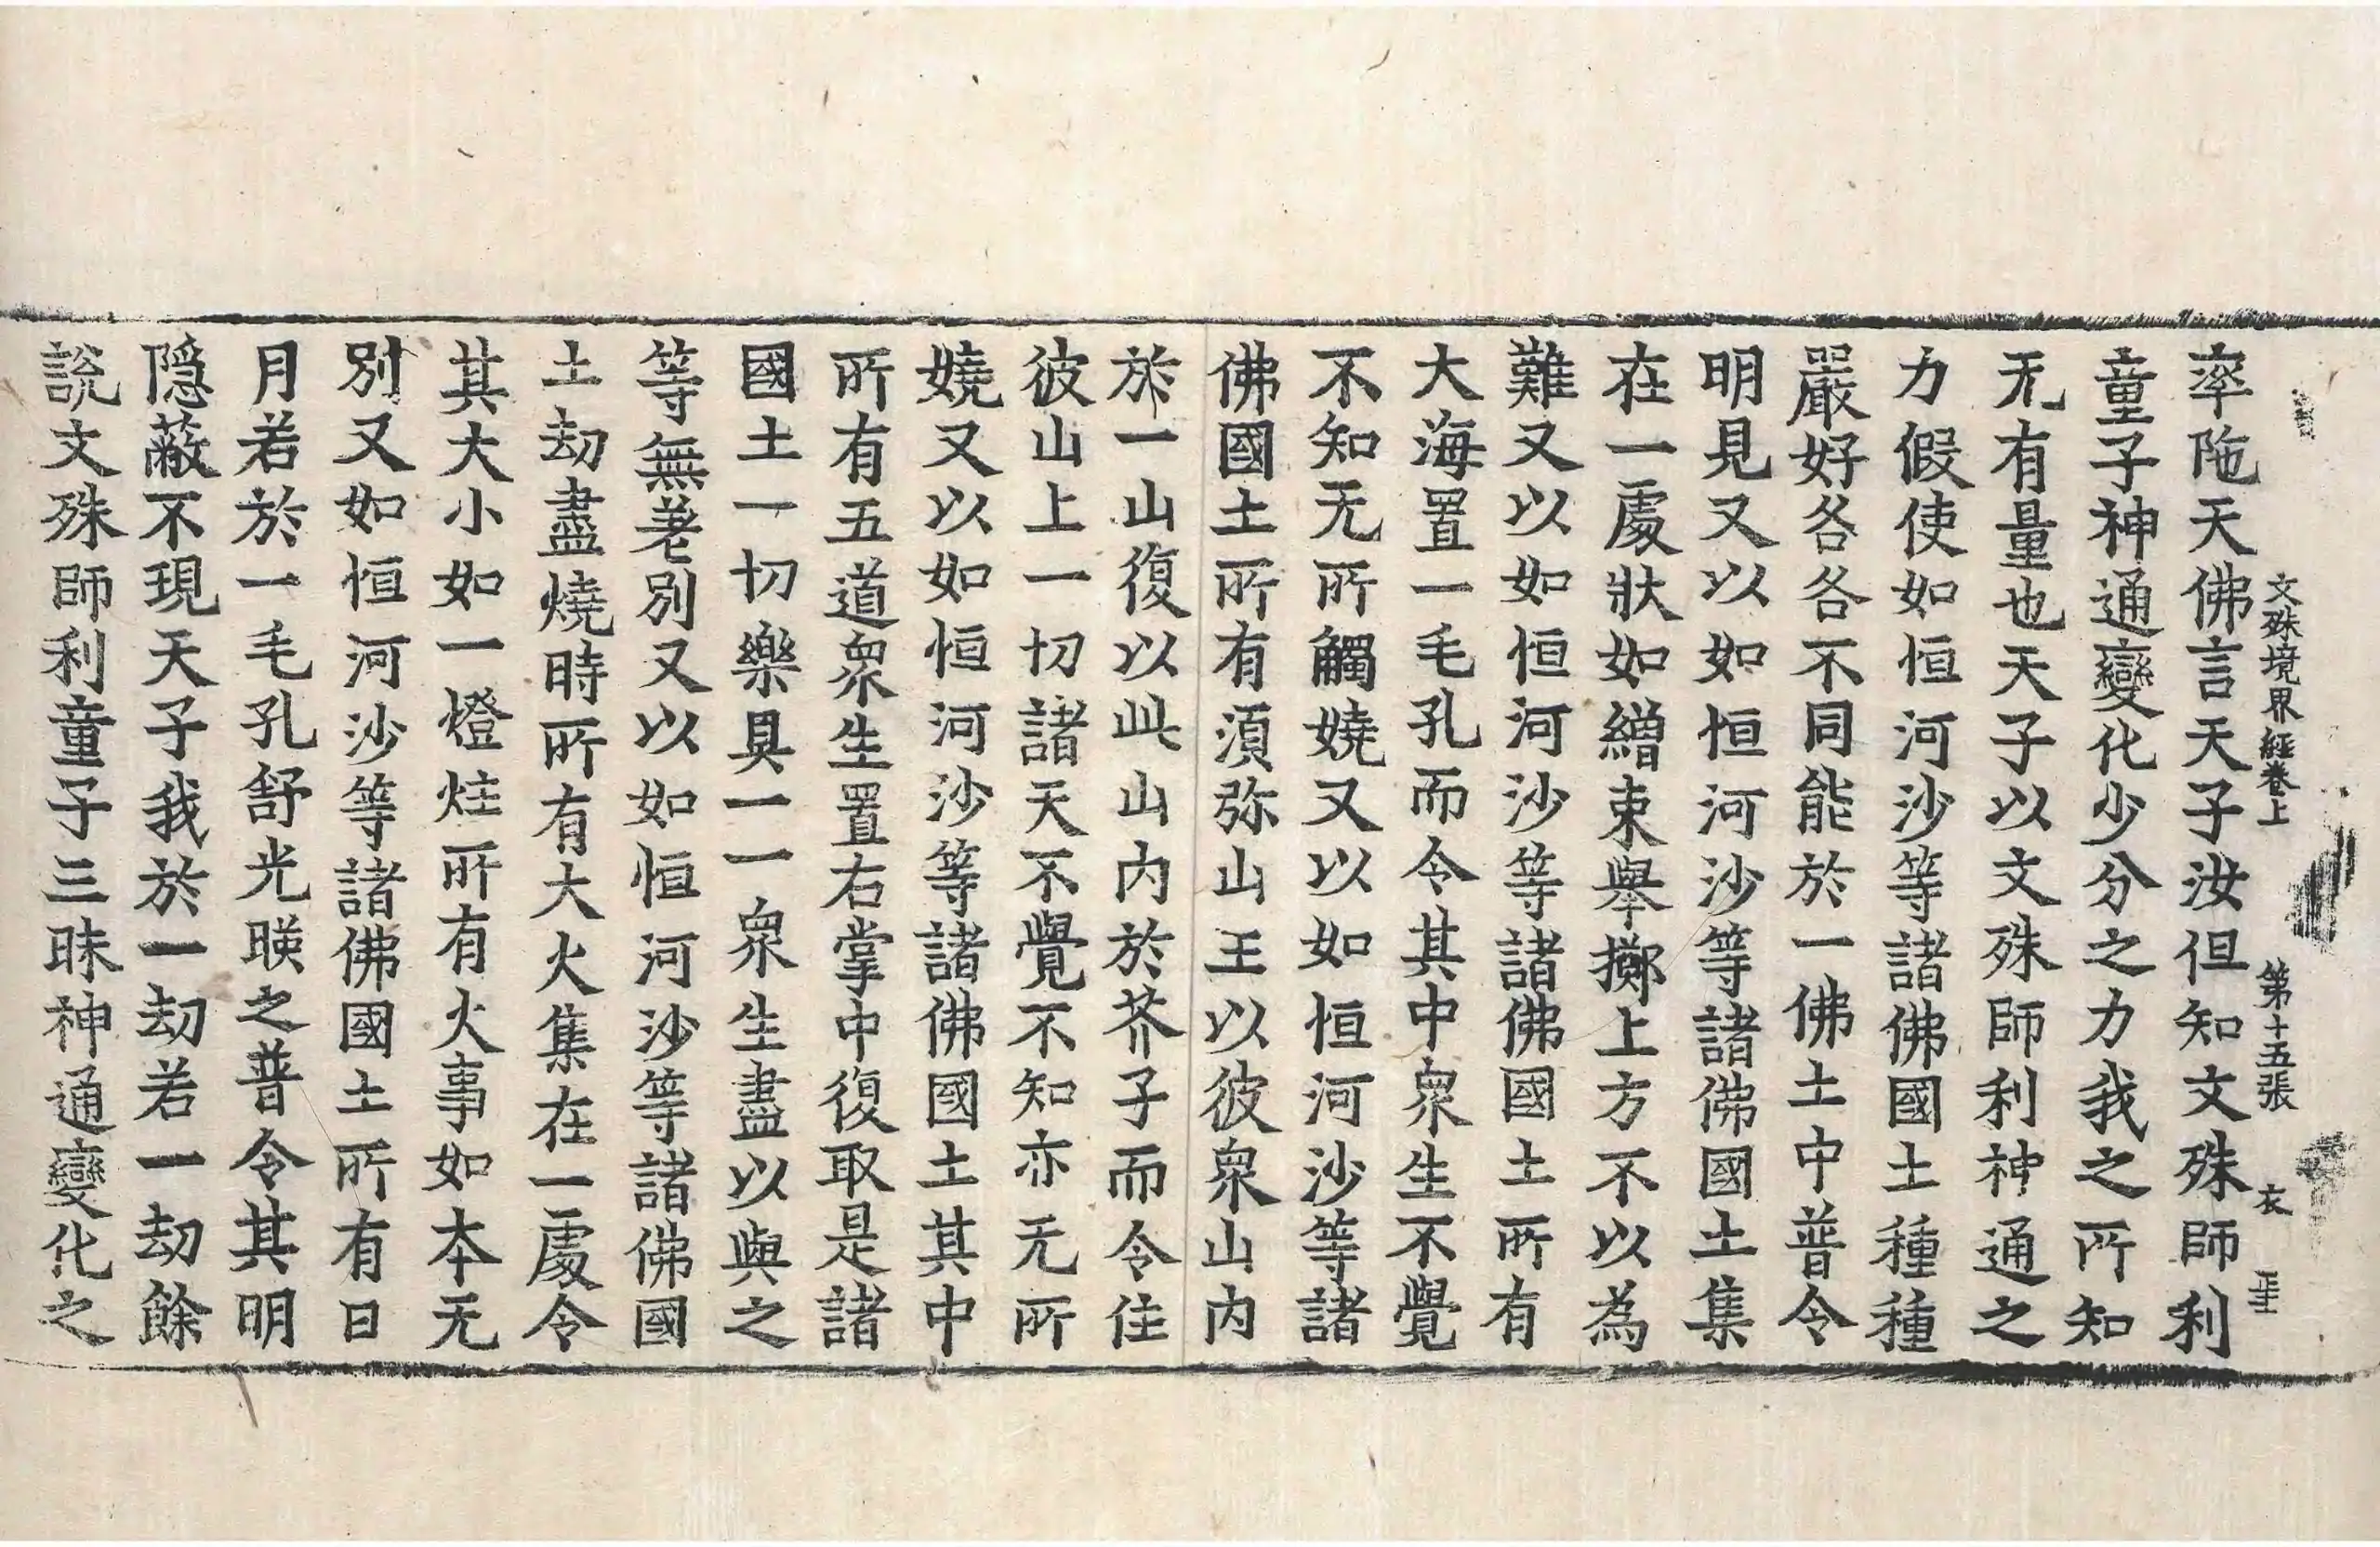 文殊境界經卷上　第十五張　衣
率陁天佛言天子汝但知文殊師利
童子神通變化少分之力我之所知
无有量也天子以文殊師利神通之
力假使如恒河沙等諸佛國土種種
嚴好各各不同能於一佛土中普令
明見又以如恒河沙等諸佛國土集
在一處狀如繒束舉擲上方不以為
難又以如恒河沙等諸佛國土所有
大海置一毛孔而令其中衆生不覺
不知无所觸嬈又以如恒河沙等諸
佛國土所有須弥山王以彼衆山内
於一山復以此山内於芥子而令住
彼山上一切諸天不覺不知亦无所
嬈又以如恒河沙等諸佛國土其中
所有五道衆生置右掌中復取是諸
國土一切樂具一一衆生盡以與之
等無差別又以如恒河沙等諸佛國
土劫盡燒時所有大火集在一處令
其大小如一燈炷所有火事如本无
別又如恒河沙等諸佛國土所有日
月若於一毛孔舒光暎之普令其明
隱蔽不現天子我於一劫若一劫餘
說文殊師利童子三昧神通變化之